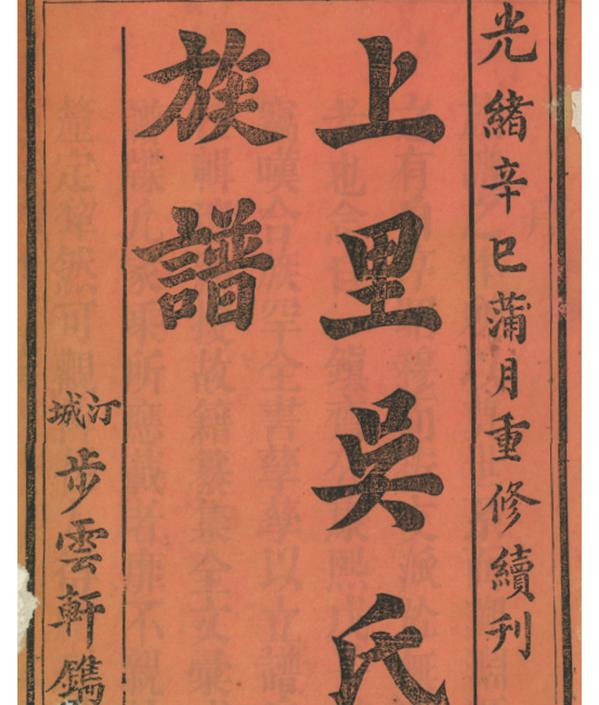 光緒辛巳蒲月重修續刊
上里吳氏
族譜
汀城
步雲軒鐫